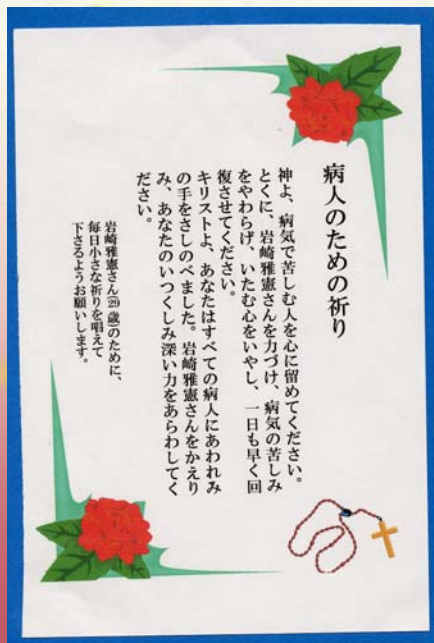 病人のための祈り
神よ、病気で苦しむ人を心に留めてください。
とくに、岩崎雅憲さんを力づけ、病気の苦しみ
をやわらげ、いたむ心をいやし、一日も早く回
復させてください。
キリストよ、あなたはすべての病人にあわれみ
の手をさしのべました。岩崎雅憲さんをかえり
み、あなたのいつくしみ深い力をあらわしてく
ださい。
岩崎雅憲さん(29歳)のために、
毎日小さな祈りを唱えて
下さるようお願いします。